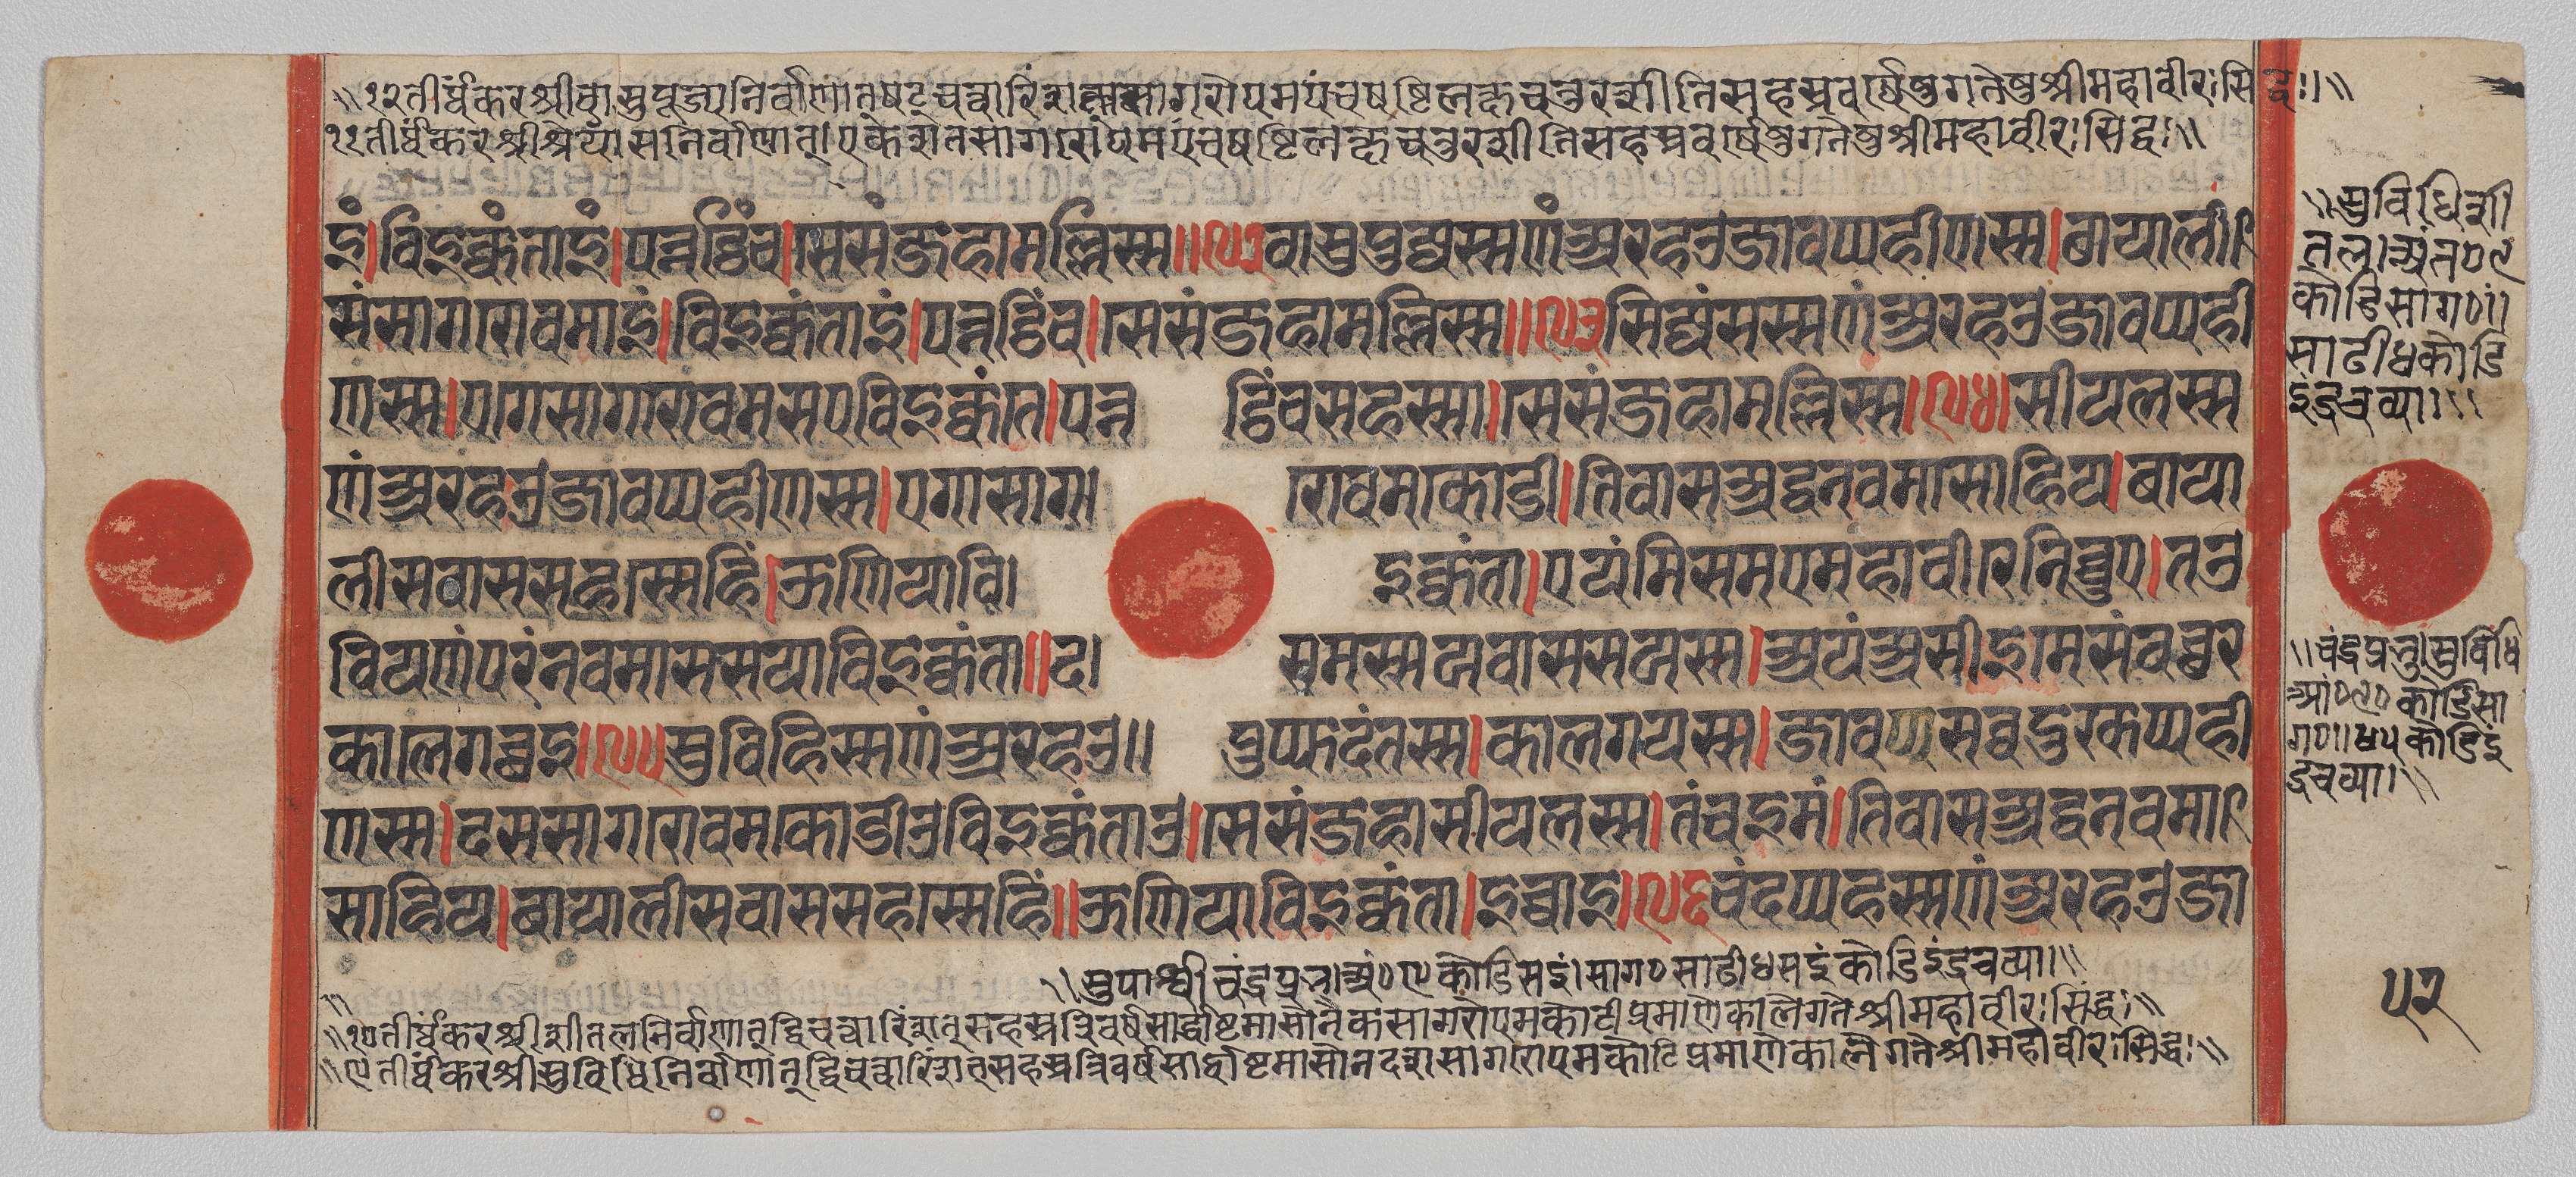 ॥१२तीर्थंकरश्रीवासुपूज्यनिर्वाणात्षट्चत्वारिंशत्सागरोपमपंचषष्टिलक्षचतुरशीतिसहस्रवर्षेषुगतेषुश्रीमहावीरःसिद्धः॥
११तीर्थंकरश्रीश्रेयांसनिर्वाणात्।एकशतसागरोपमपंचषष्टिलक्षचतुरशीतिसहस्रवर्षेषुगतेषुश्रीमहावीरःसिद्धः॥
इं।विइक्कंताइं।पन्नट्ठिंच।सेसंजहामल्लिस्स॥९२वासुपुज्जस्सणंअरहओजावप्पहीणस्स।बायाली
संसागरोवमाइं।विइक्कंताइं।पन्नट्ठिंच।सेसंजहामल्लिस्स॥९३सिज्जंसस्सणंअरहओजावप्पही
णस्स।एगेसागरोवमसएविइक्कंते।पन्न ट्ठिंचसहस्सा।सेसंजहामल्लिस्स।९४।सीयलस्स
णंअरहओजावप्पहीणस्स।एगासाग रोवमकोडी।तिवासअद्धनवमासाहिय।बाया
लीसवाससहस्सेहिं।ऊणियावि इक्कंता।एयंमिसमएमहावीरेनिव्वुए।तओ
वियणंपरंनवमाससयाविइक्कंता॥द समस्सयवाससयस्स।अयंअसीइमेसंवच्छरे
कालेगच्छइ।९५सुविहिस्सणंअरहओ॥ पुप्फदंतस्स।कालगयस्स।जावप्पसव्वदुरकप्पही
णस्स।दससागरोवमकोडीओविइक्कंताओ।सेसंजहासीयलस्स।तंचइमं।तिवासअद्धनवमा
साहिय।बायालीसवाससहस्सेहिं॥ऊणियाविइक्कंता।इच्चाइ।९६चंदप्पहस्सणंअरहओजा
॥सुविधिशी
तल।अंत०९
कोडिसाग०॥
साढी४कोडि
इंद्रचव्या।॥
॥चंद्रप्रभु।सुविधि
आं०९०कोडिसा
ग०॥४५कोडिइं
द्रचव्या।॥
॥सुपार्श्व।चंद्रप्रभ।अं०९कोडिसइं।साग०साढी४सइंकोडिइंद्रचव्या।॥
॥१०तीर्थंकरश्रीशीतलनिर्वाणात्द्विचत्वारिंशत्सहस्रत्रिवर्षसार्द्धाष्टमासोनैकसागरोपमकोटीप्रमाणेकालेगतेश्रीमहावीरःसिद्धः॥
॥९तीर्थंकरश्रीसुविधिनिर्वाणात्द्विचत्वारिंशत्सहस्रत्रिवर्षसार्द्धाष्टमासोनदशसागरोपमकोटिप्रमाणेकालेगतेश्रीमहावीरःसिद्धः॥
५२